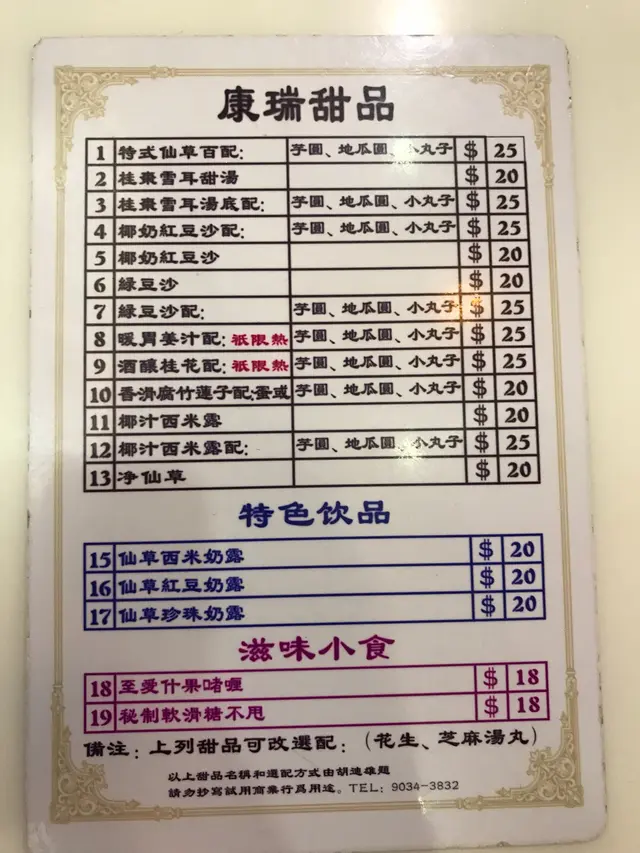 康瑞甜品
1 特式仙草百配: 芋圓、地瓜圓、小丸子 $ 25
2 桂棗雪耳甜湯 $ 20
3 桂棗雪耳湯底配: 芋圓、地瓜圓、小丸子 $ 25
4 椰奶紅豆沙配: 芋圓、地瓜圓、小丸子 $ 25
5 椰奶紅豆沙 $ 20
6 綠豆沙 $ 20
7 綠豆沙配: 芋圓、地瓜圓、小丸子 $ 25
8 暖胃姜汁配: 祇限熱 芋圓、地瓜圓、小丸子 $ 25
9 酒釀桂花配: 祇限熱 芋圓、地瓜圓、小丸子 $ 25
10 香滑腐竹蓮子配:蛋或 芋圓、地瓜圓、小丸子 $ 20
11 椰汁西米露 $ 20
12 椰汁西米露配: 芋圓、地瓜圓、小丸子 $ 25
13 净仙草 $ 20
特色饮品
15 仙草西米奶露 $ 20
16 仙草紅豆奶露 $ 20
17 仙草珍珠奶露 $ 20
滋味小食
18 至愛什果啫喱 $ 18
19 秘制軟滑糖不甩 $ 18
備注: 上列甜品可改選配: (花生、芝麻湯丸)
以上甜品名稱和選配方式由胡連雄題
請勿抄寫試用商業行爲用途。TEL: 9034-3832